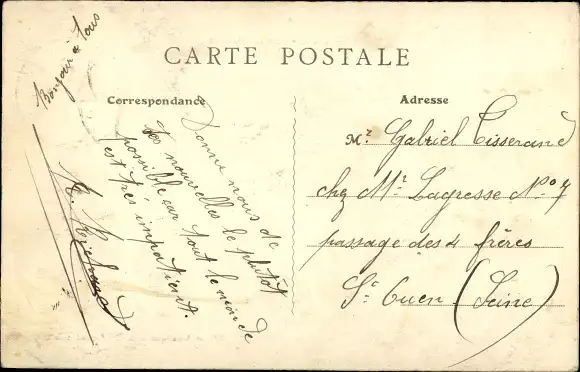 Bonjour à tous
CARTE POSTALE
Correspondance
Donne nous de
tes nouvelles le plutôt
possible car tout le monde
est très impatient.
Adresse
Mr Gabriel Tisserand
chez Mr Lagresse No 7
passage des 4 frères
St Ouen (Seine)